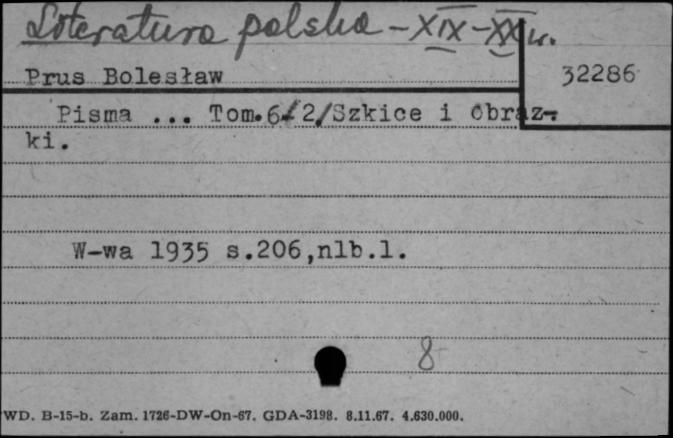 Literatura polska – XIX–XX w.
Prus Bolesław
32286
Pisma ... Tom.6/2/Szkice i obraz-
ki.
W-wa 1935 s.206,nlb.1.
8
WD. B-15-b. Zam. 1726-DW-On-67. GDA-3198. 8.11.67. 4.630.000.